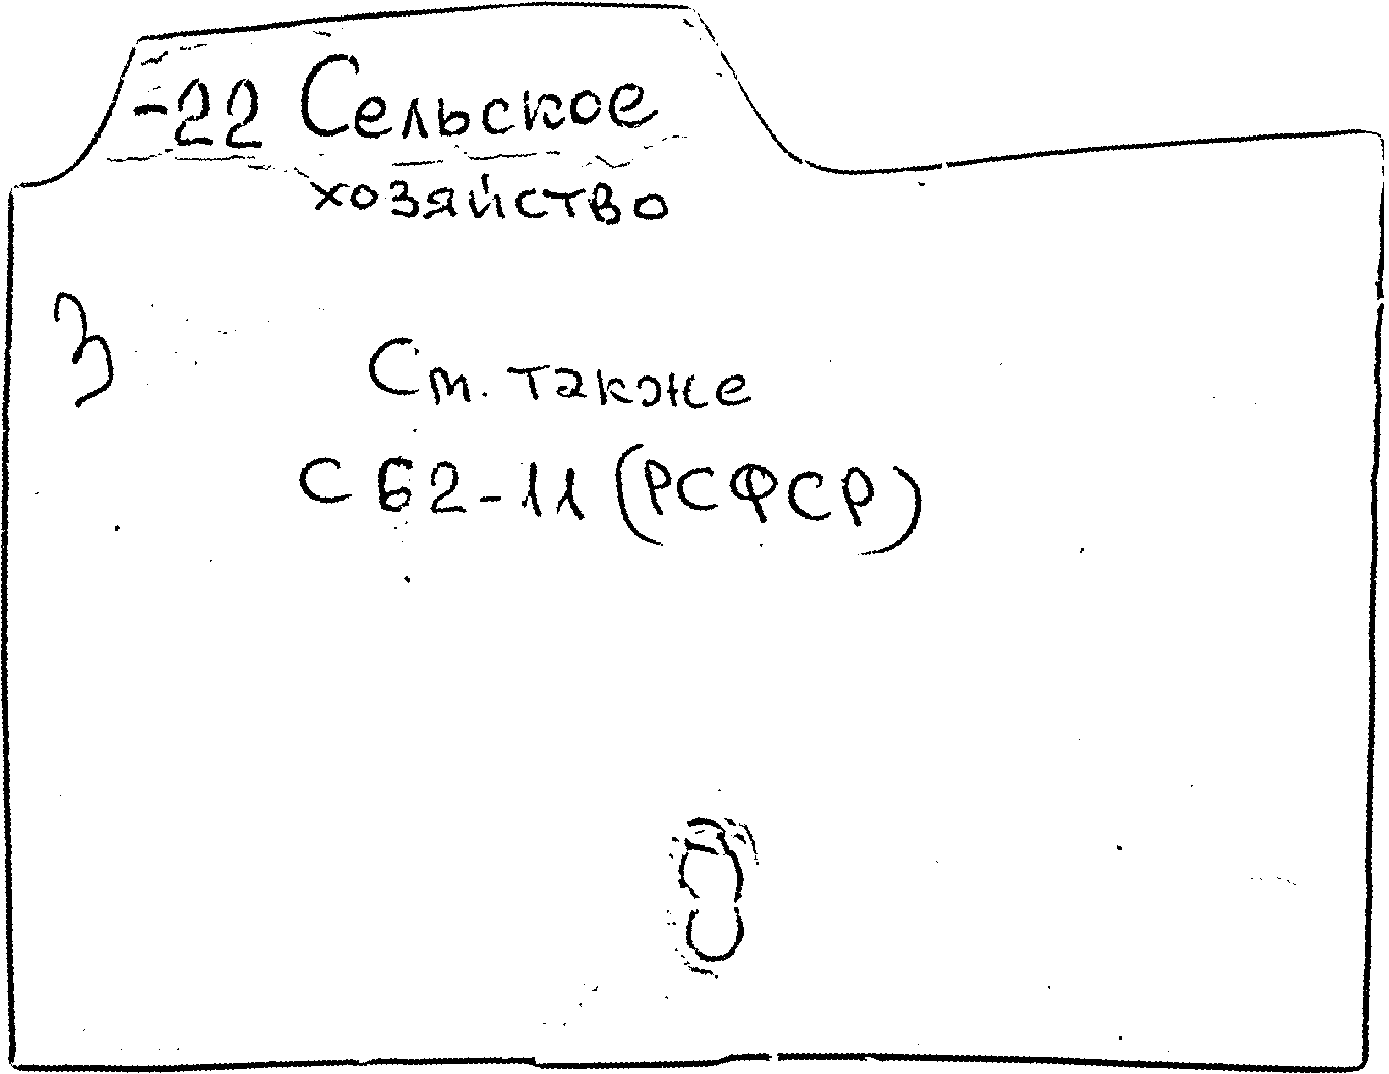 -22 Сельское
хозяйство
3
См. также
С62-11 (РСФСР)